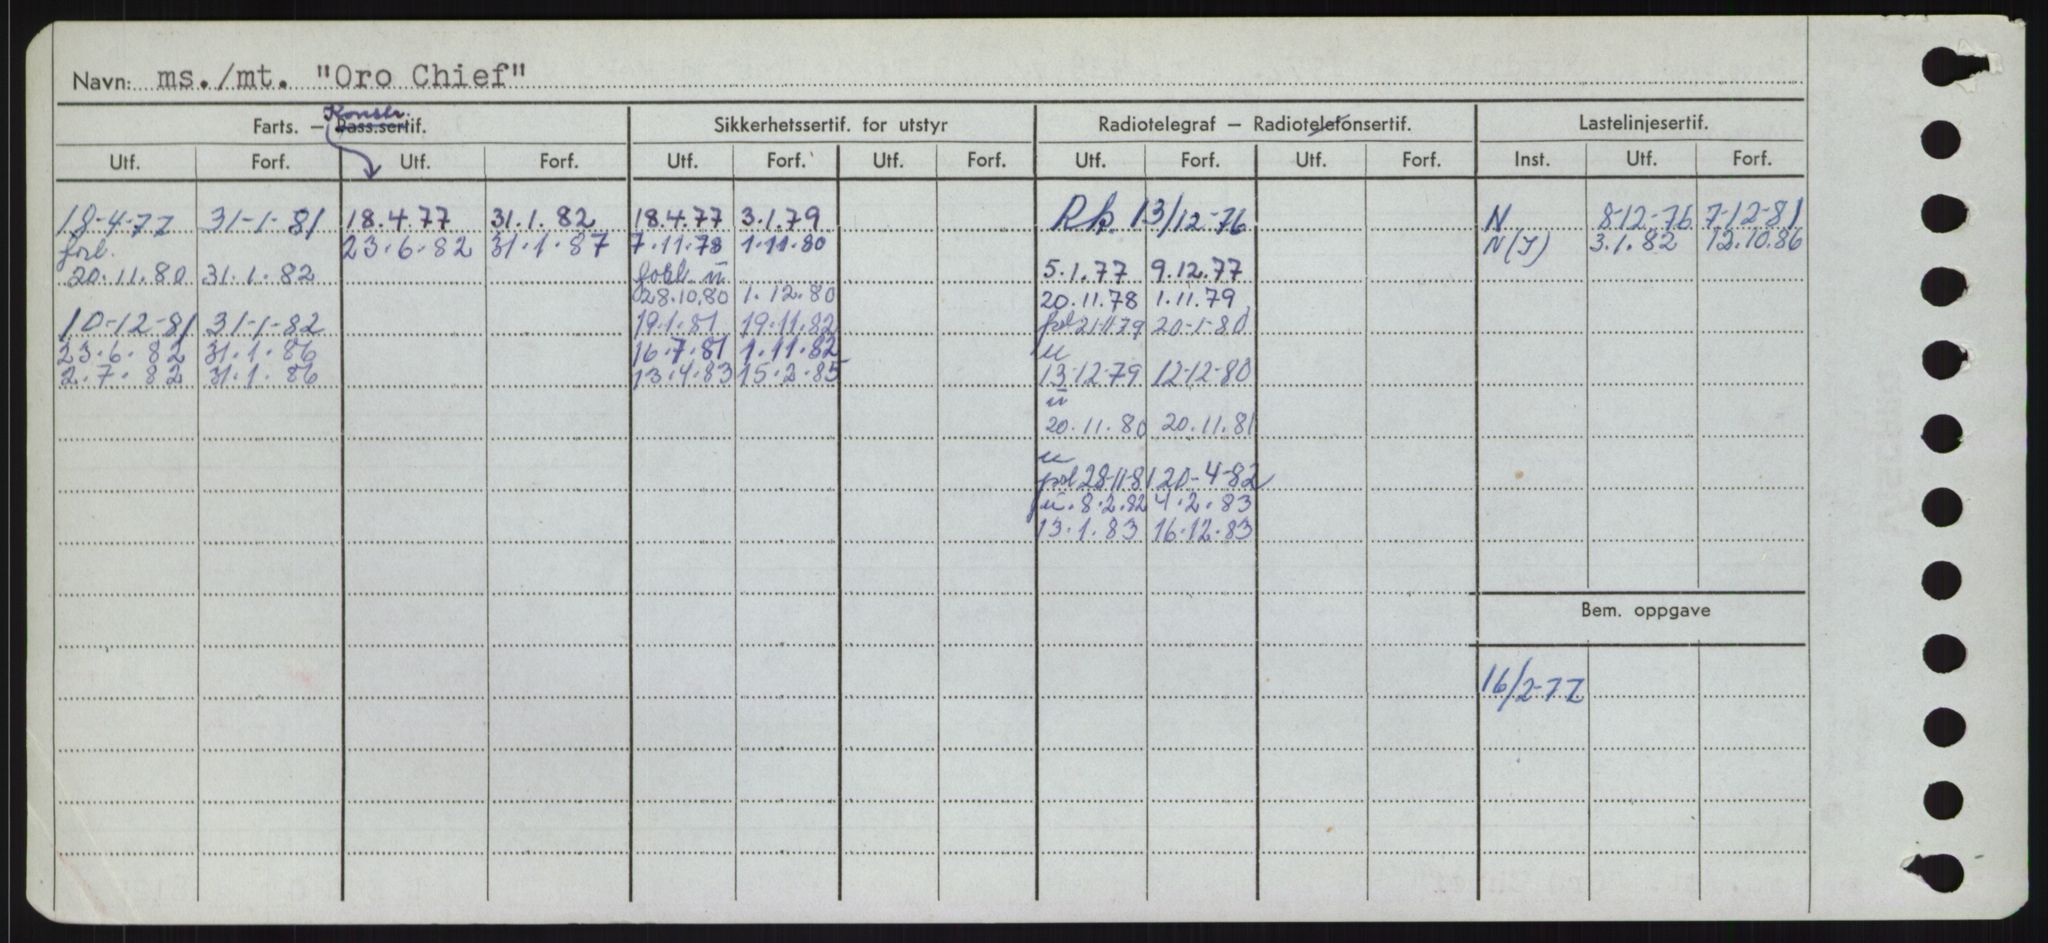 Navn: ms./mt. "Oro Chief"
Konstr.
Farts. — Pass.sertif. Sikkerhetssertif. for utstyr Radiotelegraf — Radiotelefonsertif. Lastelinjesertif.
Utf. Forf. Utf. Forf. Utf. Forf. Utf. Forf. Utf. Forf. Utf. Forf. Inst. Utf. Forf.
18-4-77 31-1-81 18.4.77 31.1.82 18.4.77 3.1.79 Rk. 13/12-76 N 8-12-76 7-12-81
forl. 23.6.82 31.1.87 7.11.78 1.11.80 N(I) 3.1.82 12.10.86
20.11.80 31.1.82 u 5.1.77 9.12.77
28.10.80 1.12.80 20.11.78 1.11.79
10-12-81 31-1-82 19.1.81 19.11.82 21-11-79 20-1-80
23.6.82 31.1.86 16.7.81 1.11.82 u
2.7.82 31.1.86 13.4.83 15.2.85 13-12-79 12-12-80
u
20.11.80 20.11.81
u
28-11-81 20-4-82
u. 8.2.82 4.2.83
13.1.83 16.12.83
Bem. oppgave
16/2-77